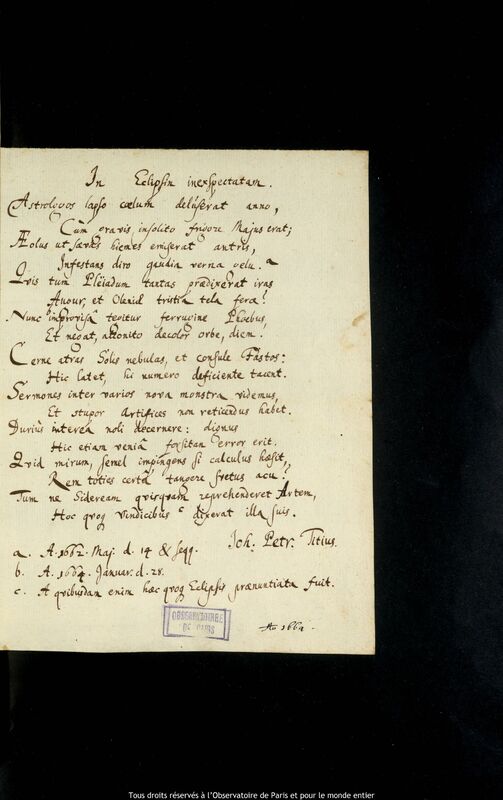 In Eclipsin inexspectatam.
Astrologos lapso cœlum deluserat anno,
Cùm gravis, insolito frigore Majus erat;
Æolus ut sævos hiemes emiserat antris,
Infestans diro gaudia verna gelu. a
Qvis tum Plëiadum tantas prædixerat iras
Auöur, et Olenid tristia tela feræ?
Nunc b improvisâ tegitur ferrugine Phœbus,
Et negat, attonito decolor orbe, diem.
Cerne atras Solis nebulas, et consule Fastos:
Hic latet, hi numero deficiente tacent.
Sermones inter varios nova monstra videmus,
Et stupor Artifices non reticendus habet.
Duriùs interea noli decernere: dignus
Hic etiam veniâ forsitan error erit.
Qvid mirum, semel impingens si calculus hæsit,
Rem toties certâ tangere svetus acu.
Tum ne Sideream qvisqvam reprehenderet Artem,
Hoc qvoq vindicibus c dixerat illa suis.
Joh. Petr. Titius.
a. A. 1662. Maj. d. 14 & seqq.
b. A. 1664. Januar. d. 28.
c. A qvibusdam enim hæc qvoq Eclipsis prænuntiata fuit.
OBSERVATOIRE
DE PARIS
Ao 1664.
Tous droits réservés à l'Observatoire de Paris et pour le monde entier